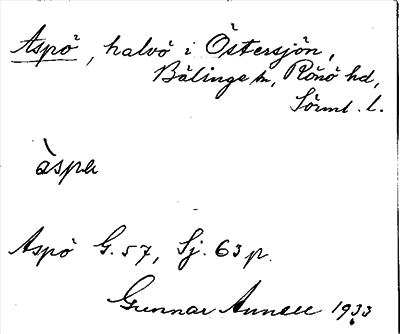 Aspö, halvö i Östersjön,
Bälinge sn, Rönö hd,
Sörml. l.
àspa
Aspö G. 57, Sj. 63 p.
Gunnar 1933